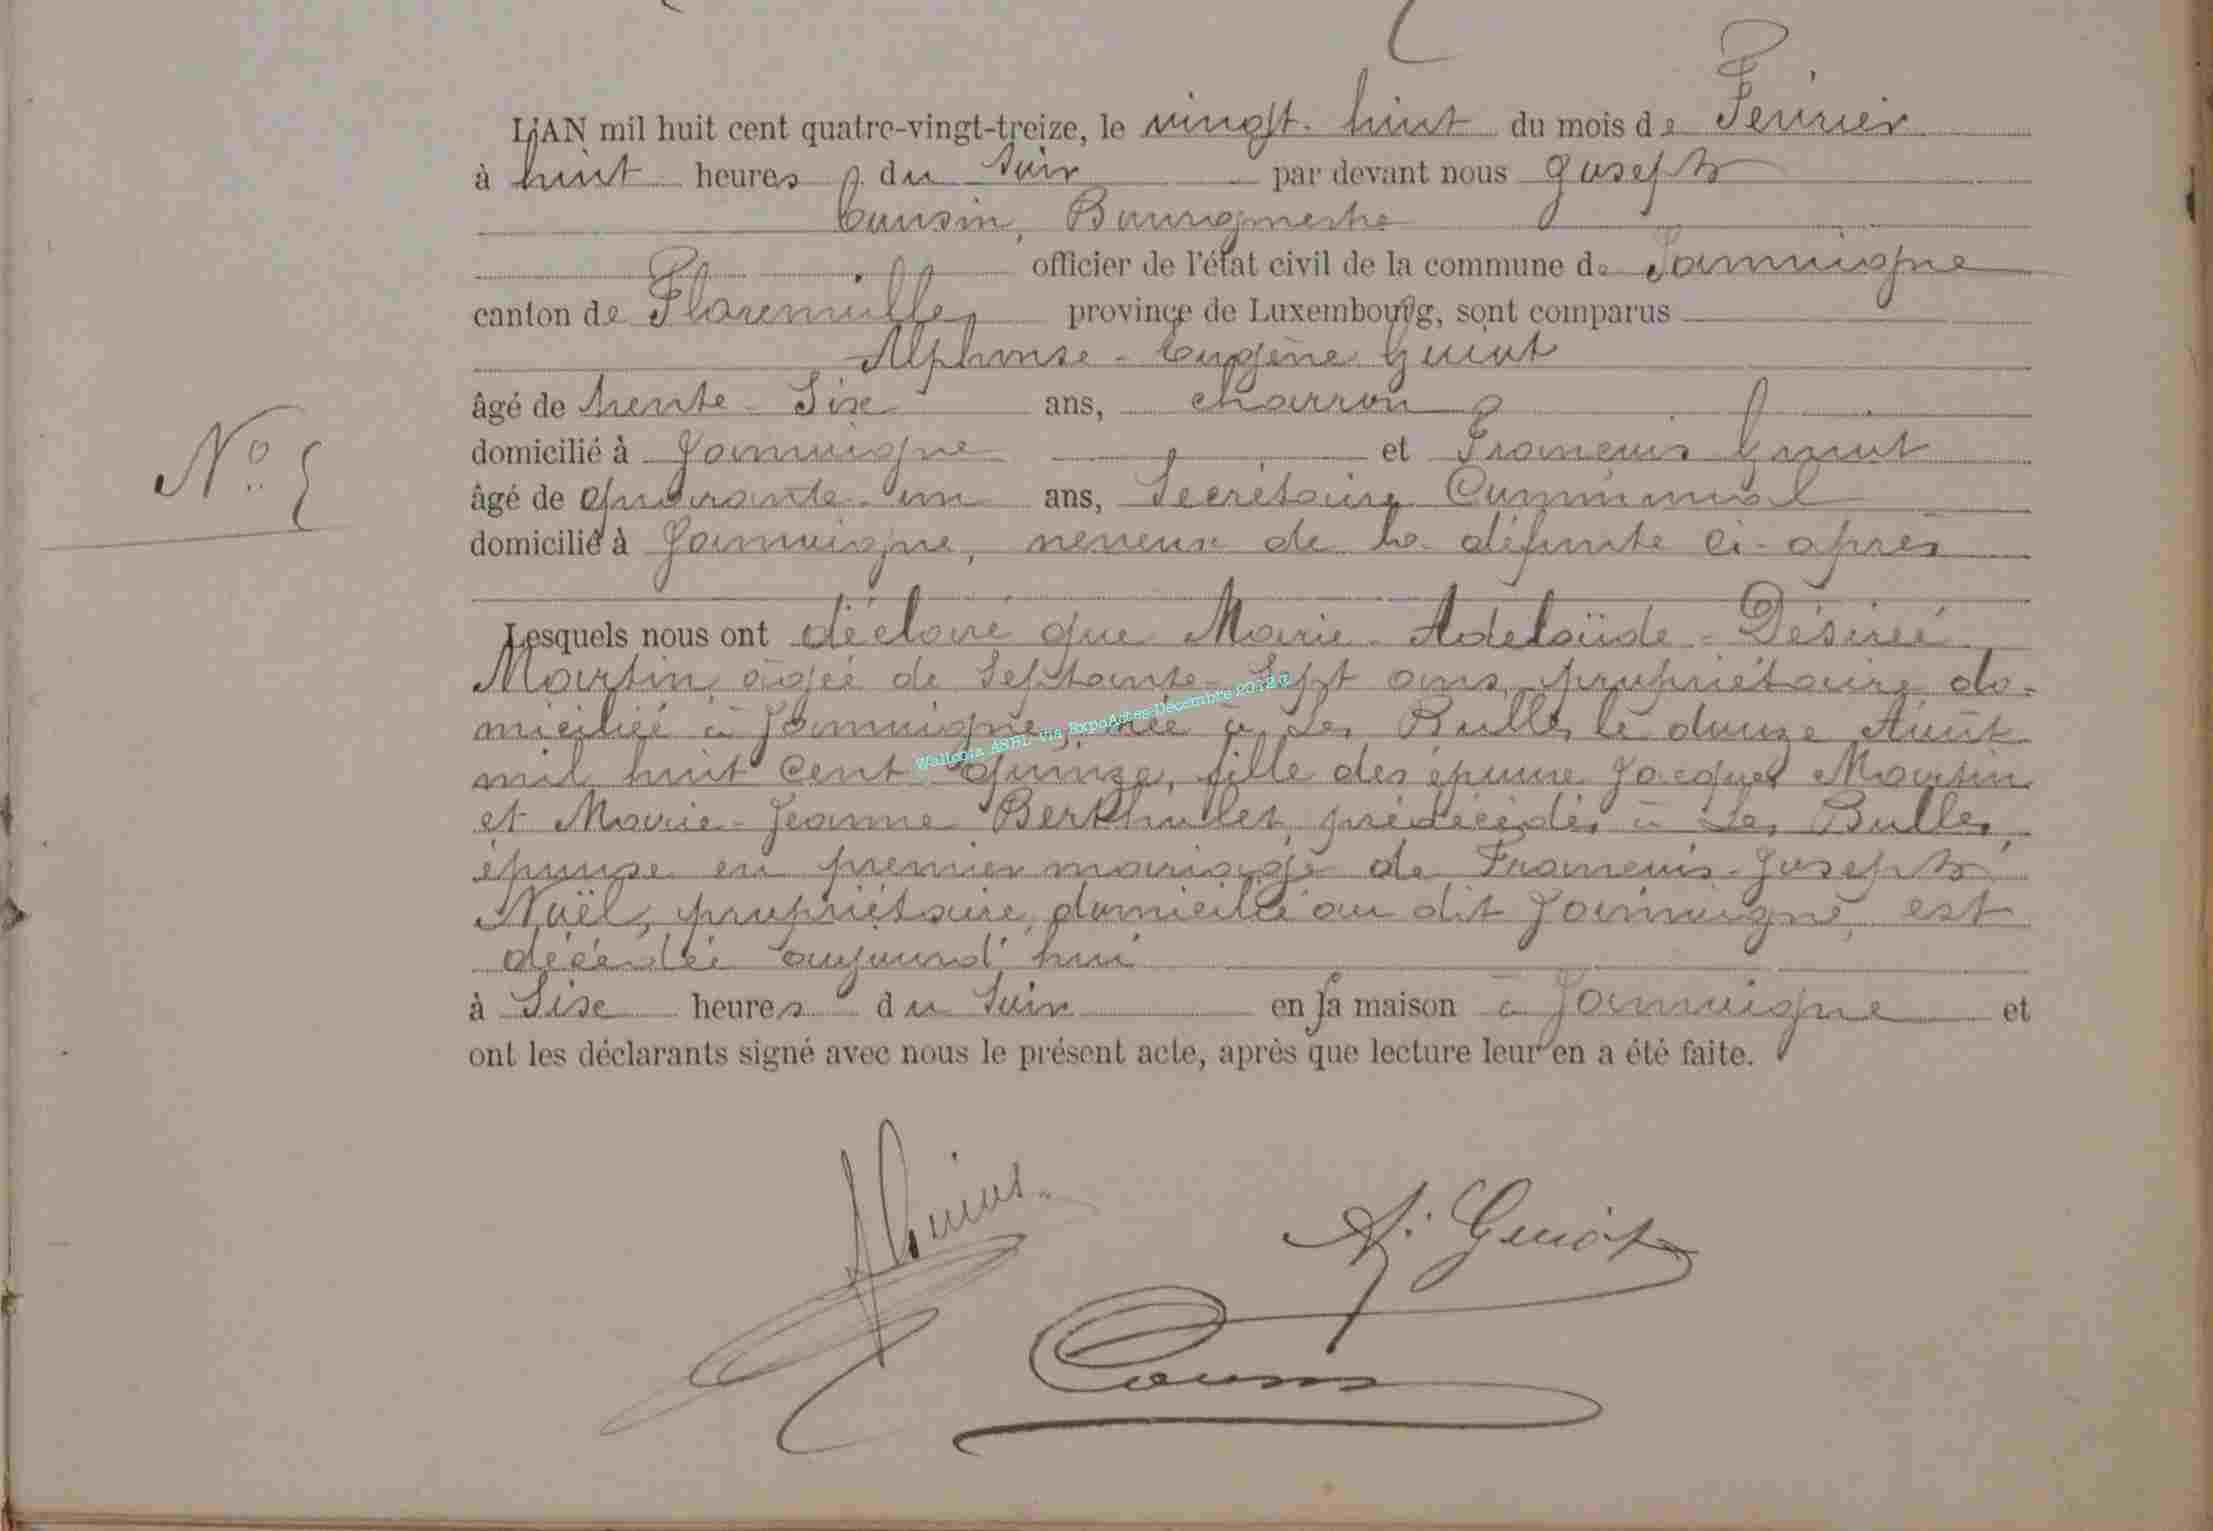 L'AN mil huit cent quatre-vingt-treize, le vingt-huit du mois de Février
à huit heures du Soir par devant nous Joseph
Cousin, Bourgmestre
officier de l'état civil de la commune de Jamoigne
canton de Florenville province de Luxembourg, sont comparus
Alphonse-Eugène Guiot
âgé de trente-Six ans, charron
domicilié à Jamoigne et François Guiot
N° 5
âgé de quarante-un ans, Secrétaire Communal
domicilié à Jamoigne, neveux de la défunte ci-après
Lesquels nous ont déclaré que Marie-Adelaïde-Désirée
Martin, âgée de Septante-Sept ans, propriétaire do-
miciliée à Jamoigne, née à Les Bulles le douze Août
mil huit cent quinze, fille des époux Jacques Martin
et Marie-Jeanne Berthulet, prédécédés à Les Bulles,
épouse en premier mariage de François-Joseph
Noël, propriétaire, domicilié au dit Jamoigne, est
décédée aujourd'hui
à Six heures du Soir en sa maison à Jamoigne et
ont les déclarants signé avec nous le présent acte, après que lecture leur en a été faite.
Wallonia ASBL via ExpoActes Décembre 2012
A. Guiot
Cousin